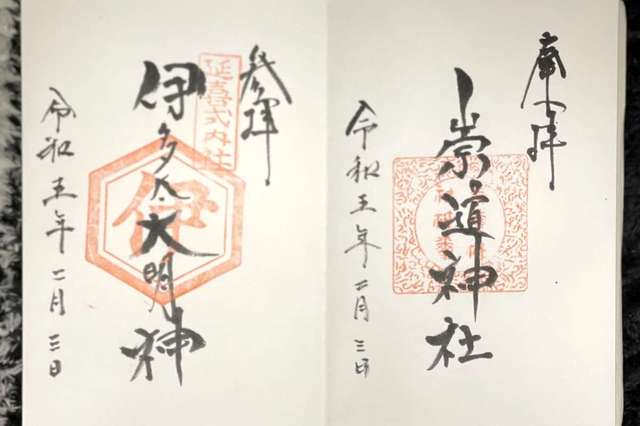 奉拝
崇道神社
令和五年二月三日
参拝
延喜式内社
伊
伊多太大明神
令和五年二月三日